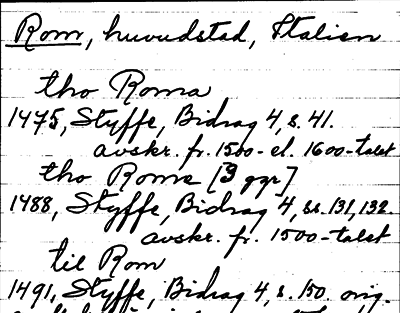 Rom, huvudstad, Italien
tho Roma
1475, Styffe, Bidrag 4, s. 41.
avskr. fr. 1500- el. 1600-talet
tho Roma [3 ggr]
1488, Styffe, Bidrag 4, ss. 131, 132.
avskr. fr. 1500-talet
til Rom
1491, Styffe, Bidrag 4, s. 150. orig.